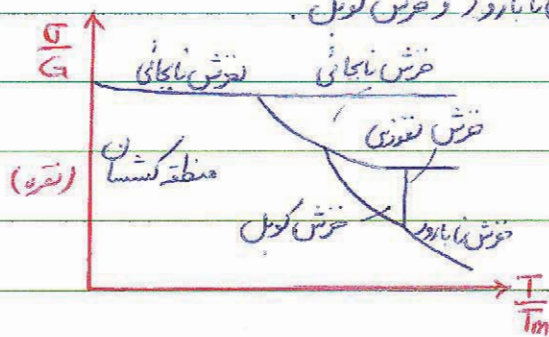 نابارو و خزش کوبل.
σ/G
لغزش نابجائی
خزش نابجائی
خزش نفوذی
منطقه کشسان
(نقره)
خزش کوبل
خزش نابارو
T/Tm